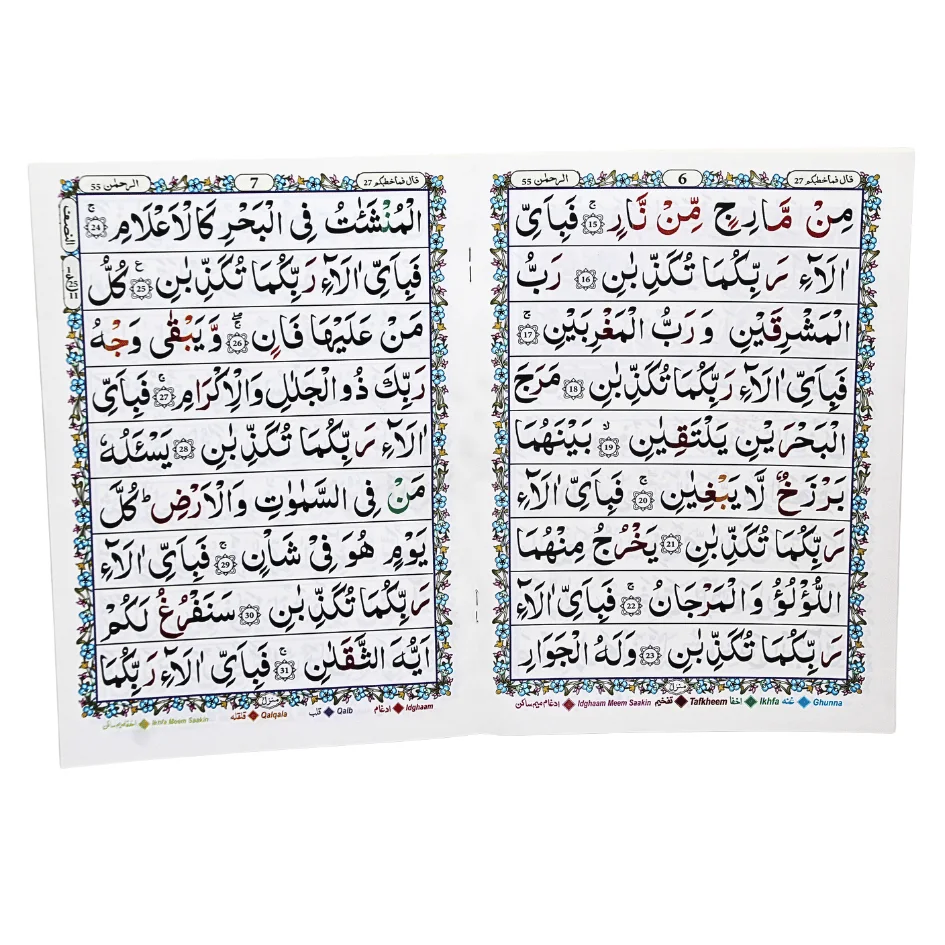 قال فما خطبكم 27
6
الرحمٰن 55
مِنْ مَّارِجٍ مِّنْ نَّارٍ ۚ 15 فَبِاَىِّ
اٰلَآءِ رَبِّكُمَا تُكَذِّبٰنِ 16 رَبُّ
الْمَشْرِقَيْنِ وَرَبُّ الْمَغْرِبَيْنِ ۚ 17
فَبِاَىِّ اٰلَآءِ رَبِّكُمَا تُكَذِّبٰنِ 18 مَرَجَ
الْبَحْرَيْنِ يَلْتَقِيٰنِ ۙ 19 بَيْنَهُمَا
بَرْزَخٌ لَّا يَبْغِيٰنِ ۚ 20 فَبِاَىِّ اٰلَآءِ
رَبِّكُمَا تُكَذِّبٰنِ 21 يَخْرُجُ مِنْهُمَا
اللُّؤْلُؤُ وَالْمَرْجَانُ ۚ 22 فَبِاَىِّ اٰلَآءِ
رَبِّكُمَا تُكَذِّبٰنِ 23 وَلَهُ الْجَوَارِ
منزل
Ghunna غنه Ikhfa اخفا Tafkheem تفخیم Idghaam Meem Saakin ادغام میم ساکن
قال فما خطبكم 27
7
الرحمٰن 55
الْمُنْشَئٰتُ فِى الْبَحْرِ كَالْاَعْلَامِ ۚ 24
فَبِاَىِّ اٰلَآءِ رَبِّكُمَا تُكَذِّبٰنِ ۧ 25 كُلُّ
مَنْ عَلَيْهَا فَانٍ ۚ 26 وَّيَبْقٰى وَجْهُ
رَبِّكَ ذُو الْجَلٰلِ وَالْاِكْرَامِ ۚ 27 فَبِاَىِّ
اٰلَآءِ رَبِّكُمَا تُكَذِّبٰنِ 28 يَسْـَٔلُهٗ
مَنْ فِى السَّمٰوٰتِ وَالْاَرْضِ ؕ كُلَّ
يَوْمٍ هُوَ فِىْ شَاْنٍ ۚ 29 فَبِاَىِّ اٰلَآءِ
رَبِّكُمَا تُكَذِّبٰنِ 30 سَنَفْرُغُ لَكُمْ
اَيُّهَ الثَّقَلٰنِ ۚ 31 فَبِاَىِّ اٰلَآءِ رَبِّكُمَا
منزل
Idghaam ادغام Qalb قلب Qalqala قلقله Ikhfa Meem Saakin اخفا میم ساکن